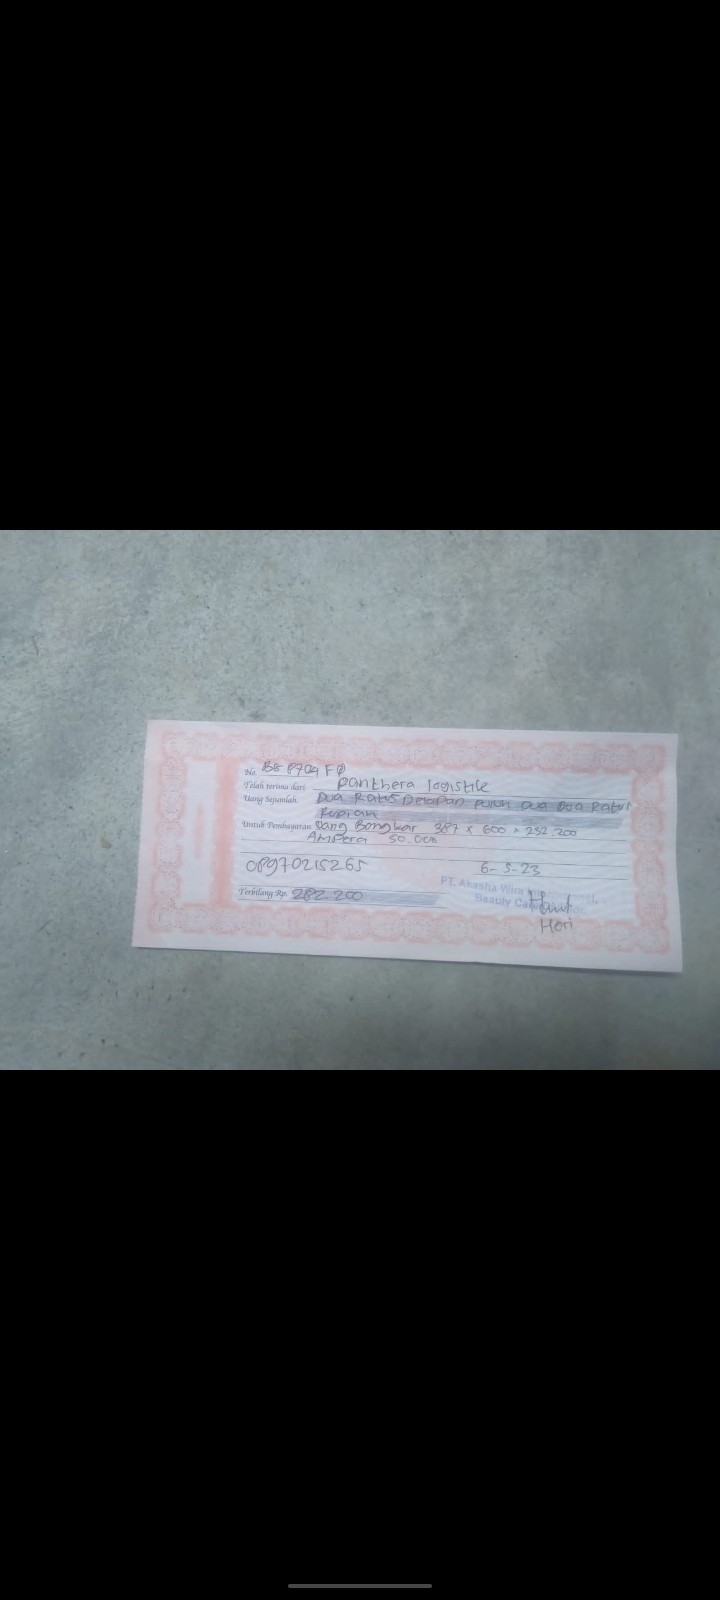 No. B8 8704 FO
Telah terima dari Panthera logistik
Uang Sejumlah Dua Ratus Delapan puluh dua Dua Ratus
Rupiah
Untuk Pembayaran Uang Bongkar 387 x 600 = 232.200
Ampera 50.000
08970215265
6-5-23
Terbilang Rp. 282.200
PT. Akasha Wira
Beauty
Heri